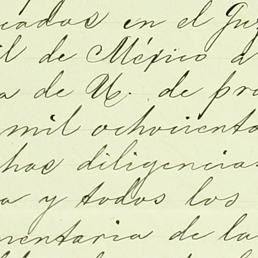 icados en el Juz
il de México a
a de M. de pro
mil ochocientos
has diligencias
a y todos los
mentaria de la